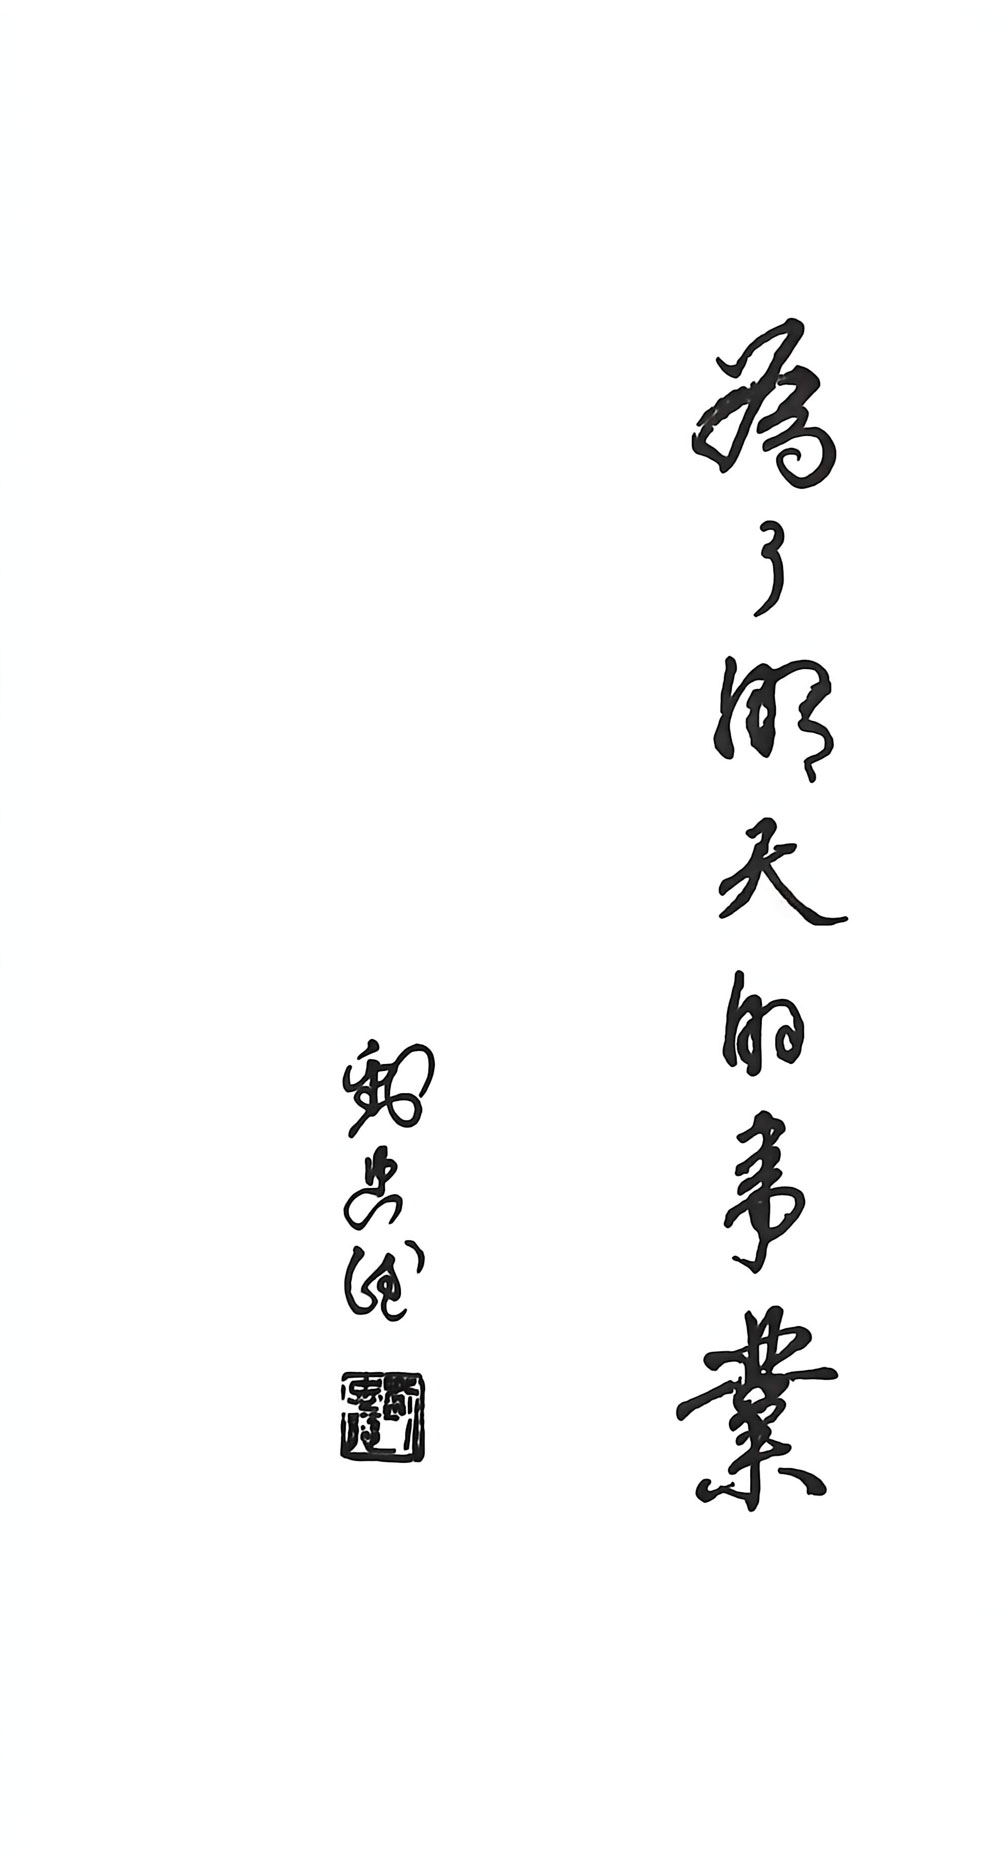 為了明天的事業
劉忠德